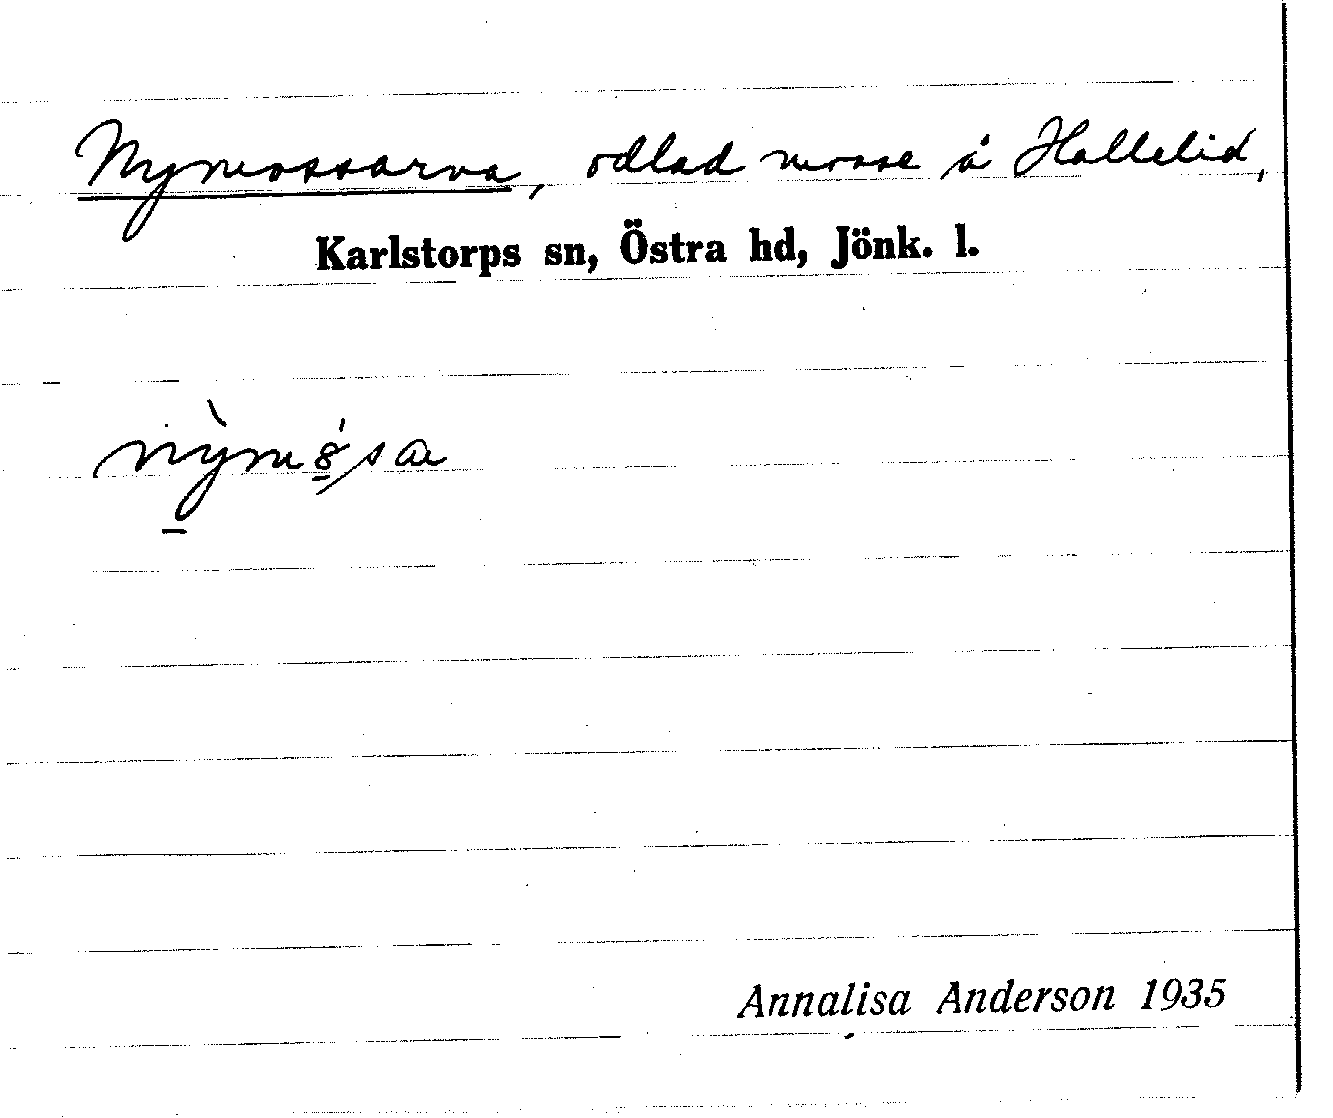 Nymossarna, odlad mosse å Hallelid,
Karlstorps sn, Östra hd, Jönk. l.
Annalisa Anderson 1935